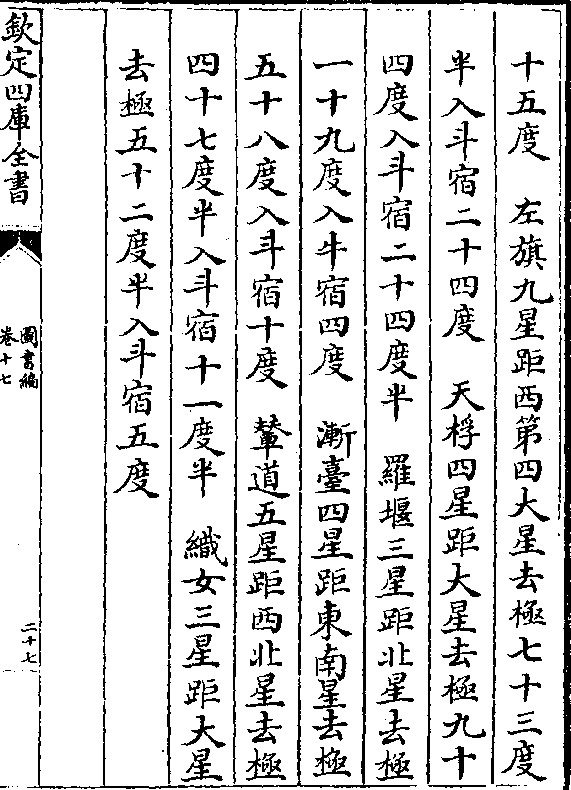 十五度　左旗九星距西第四大星去極七十三度
半入斗宿二十四度　天桴四星距大星去極九十
四度入斗宿二十四度半　羅堰三星距北星去極
一十九度入牛宿四度　漸臺四星距東南星去極
五十八度入斗宿十度　輦道五星距西北星去極
四十七度半入斗宿十一度半　織女三星距大星
去極五十二度半入斗宿五度
欽定四庫全書
圖書編
卷十七
二十七